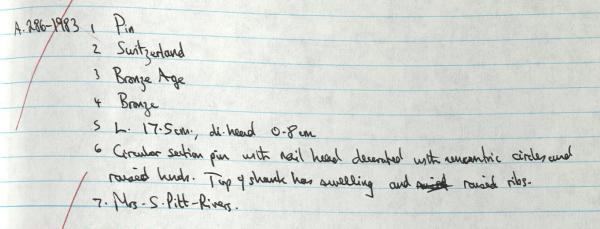 A.286-1983 1 Pin
2 Switzerland
3 Bronze Age
4 Bronze
5 L. 17.5cm, di. head 0.8cm
6 Circular section pin with nail head decorated with concentric circles and
raised Top of shank has swelling and raised ribs.
7. Mrs. S. Pitt-Rivers.